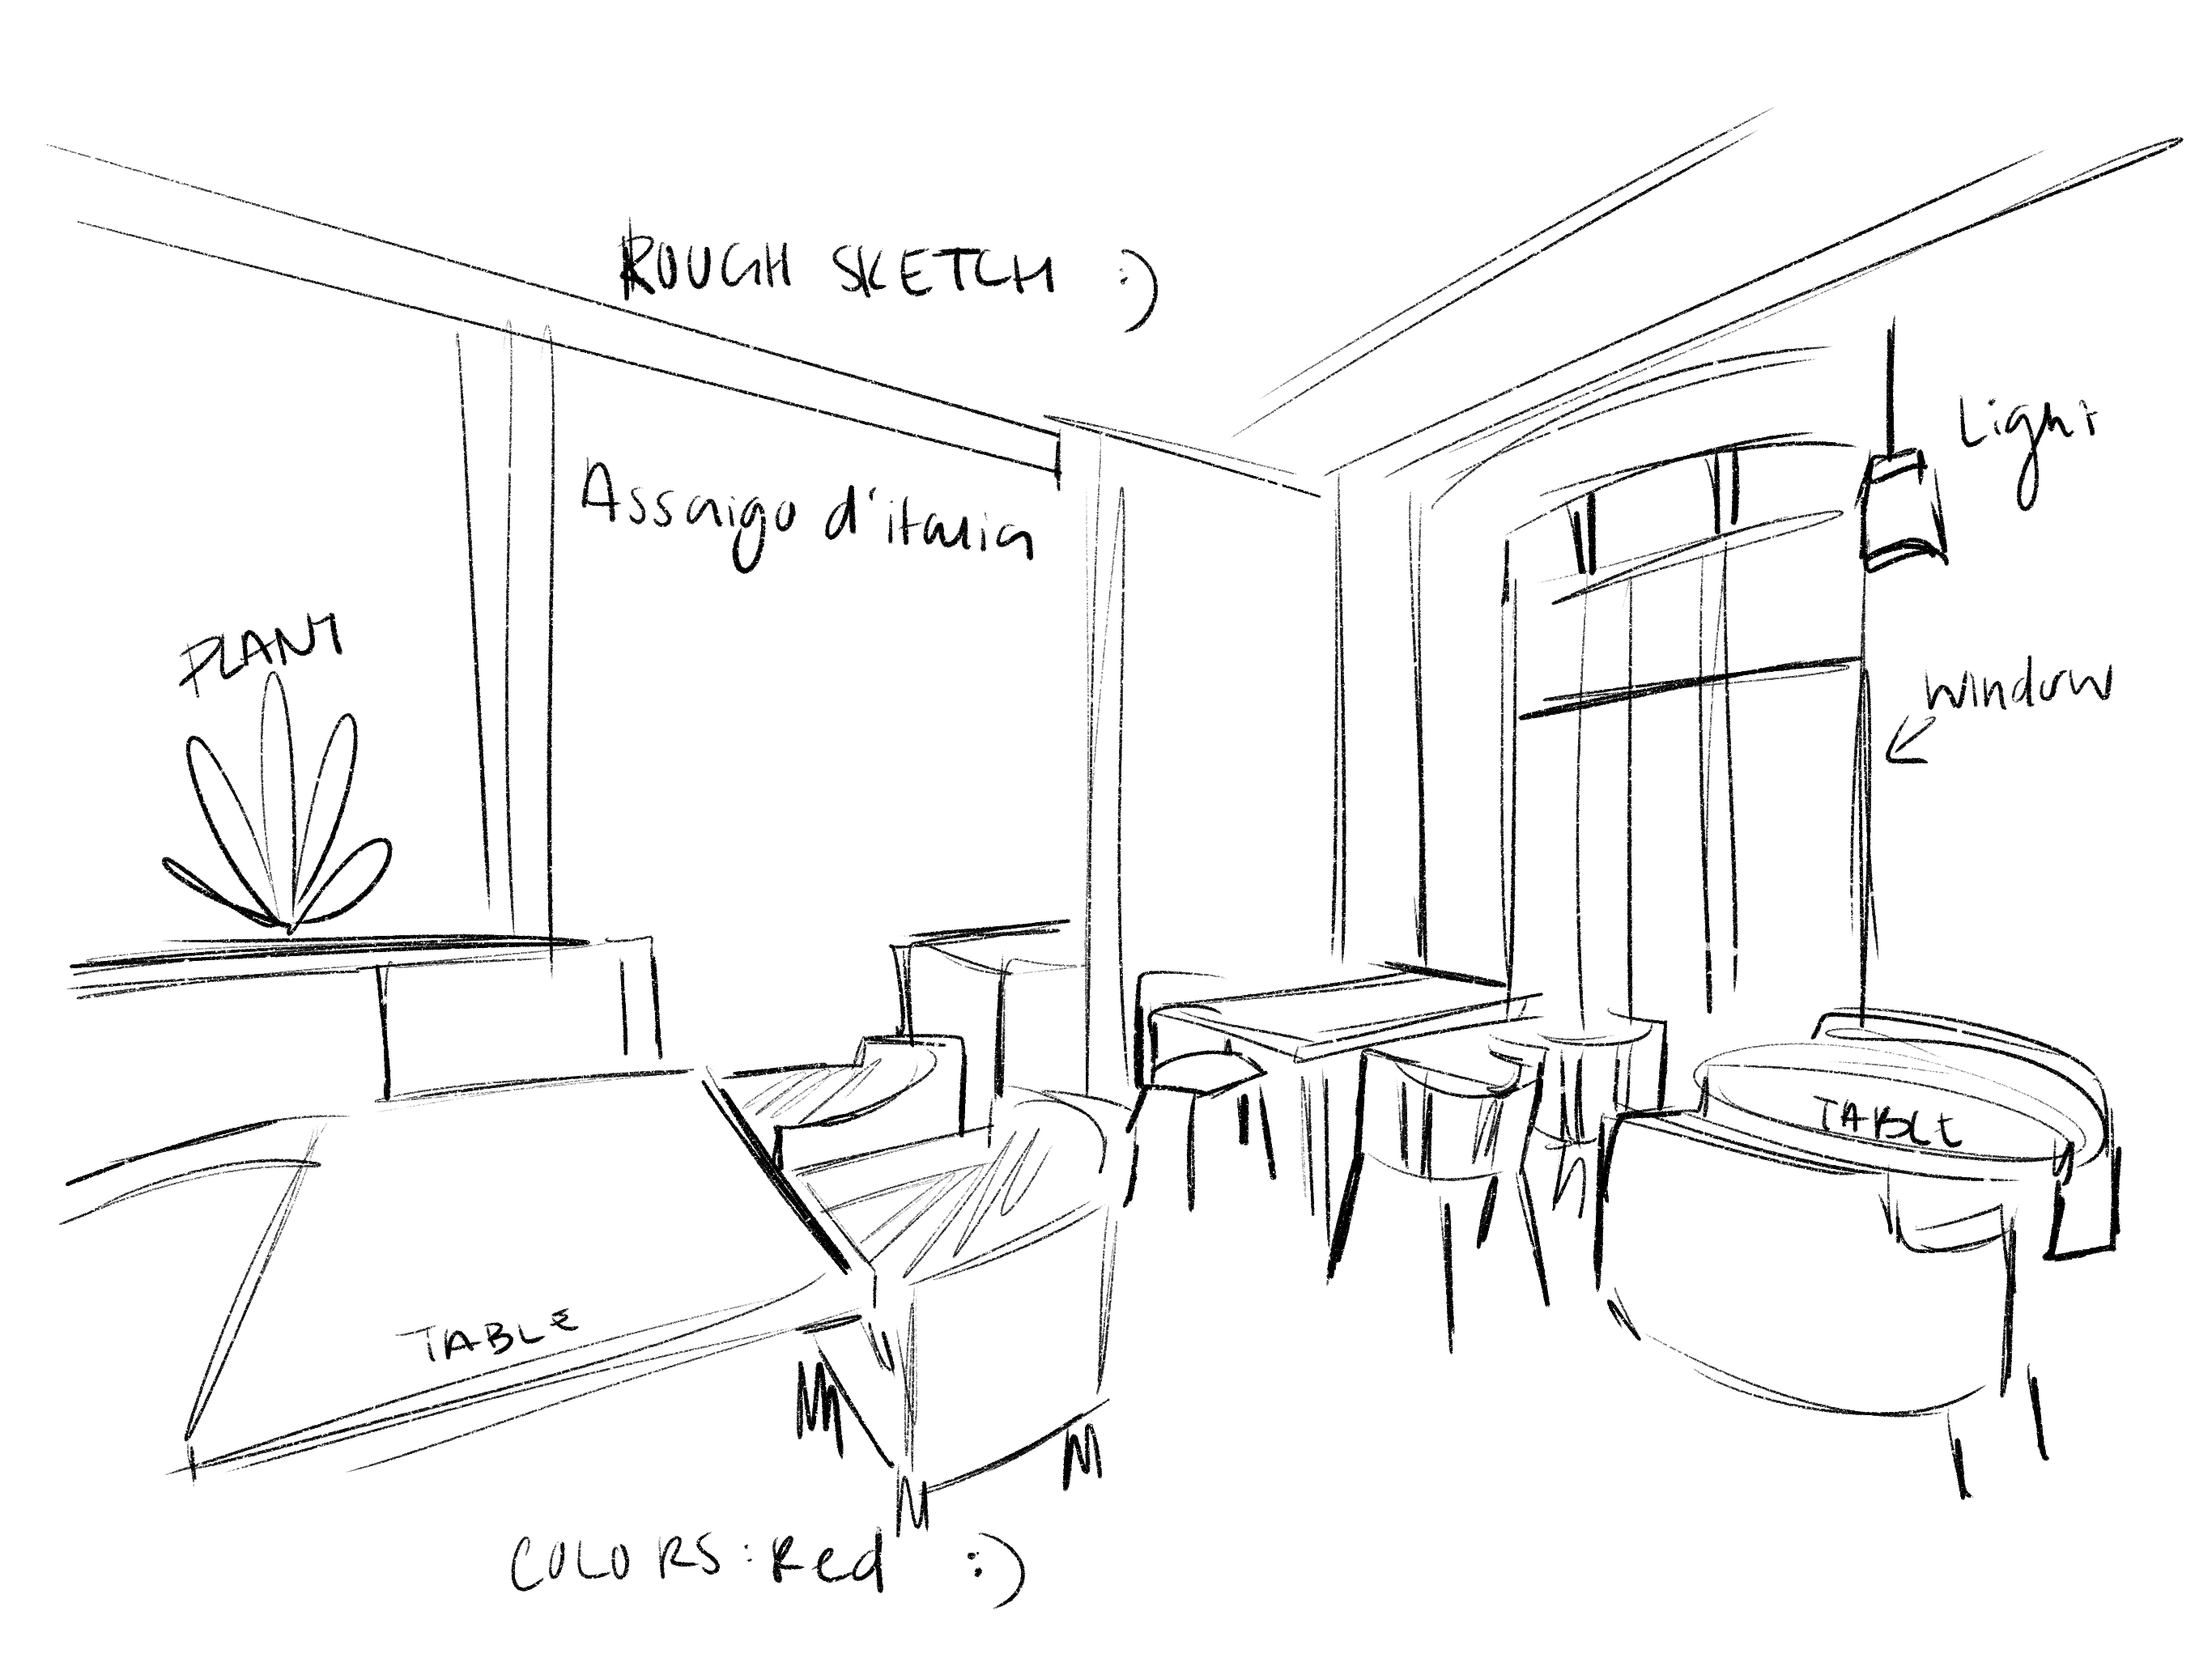 ROUGH SKETCH :)
Light
Assaigo d'italia
PLANT
window
TABLE
TABLE
COLORS: Red :)